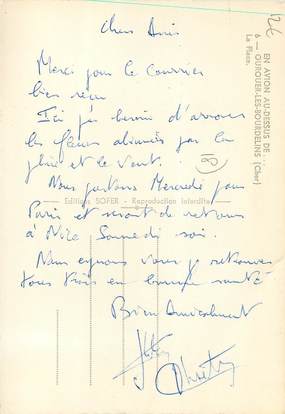 Chers Amis
Merci pour le courrier
bien reçu
Ici pas besoin d'arroser
les fleurs abimées par la
pluie et le vent.
Nous partons Mercredi pour
Paris et seront de retour
à Nice Samedi soir.
Nous espérons vous retrouver
tous trois en bonne santé
Bien Amicalement
EN AVION AU-DESSUS DE
6 — OUROUER-LES-BOURDELINS (Cher)
La Place.
Editions SOFER - Reproduction interdite